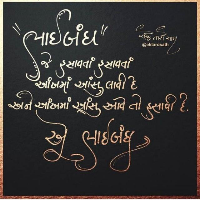 "ભાઈબંધ"
જે હસાવતાં હસાવતાં
આંખમાં આંસુ લાવી દે
અને આંખમાં આંસુ આવે તો હસાવી દે.
એ ભાઈબંધ